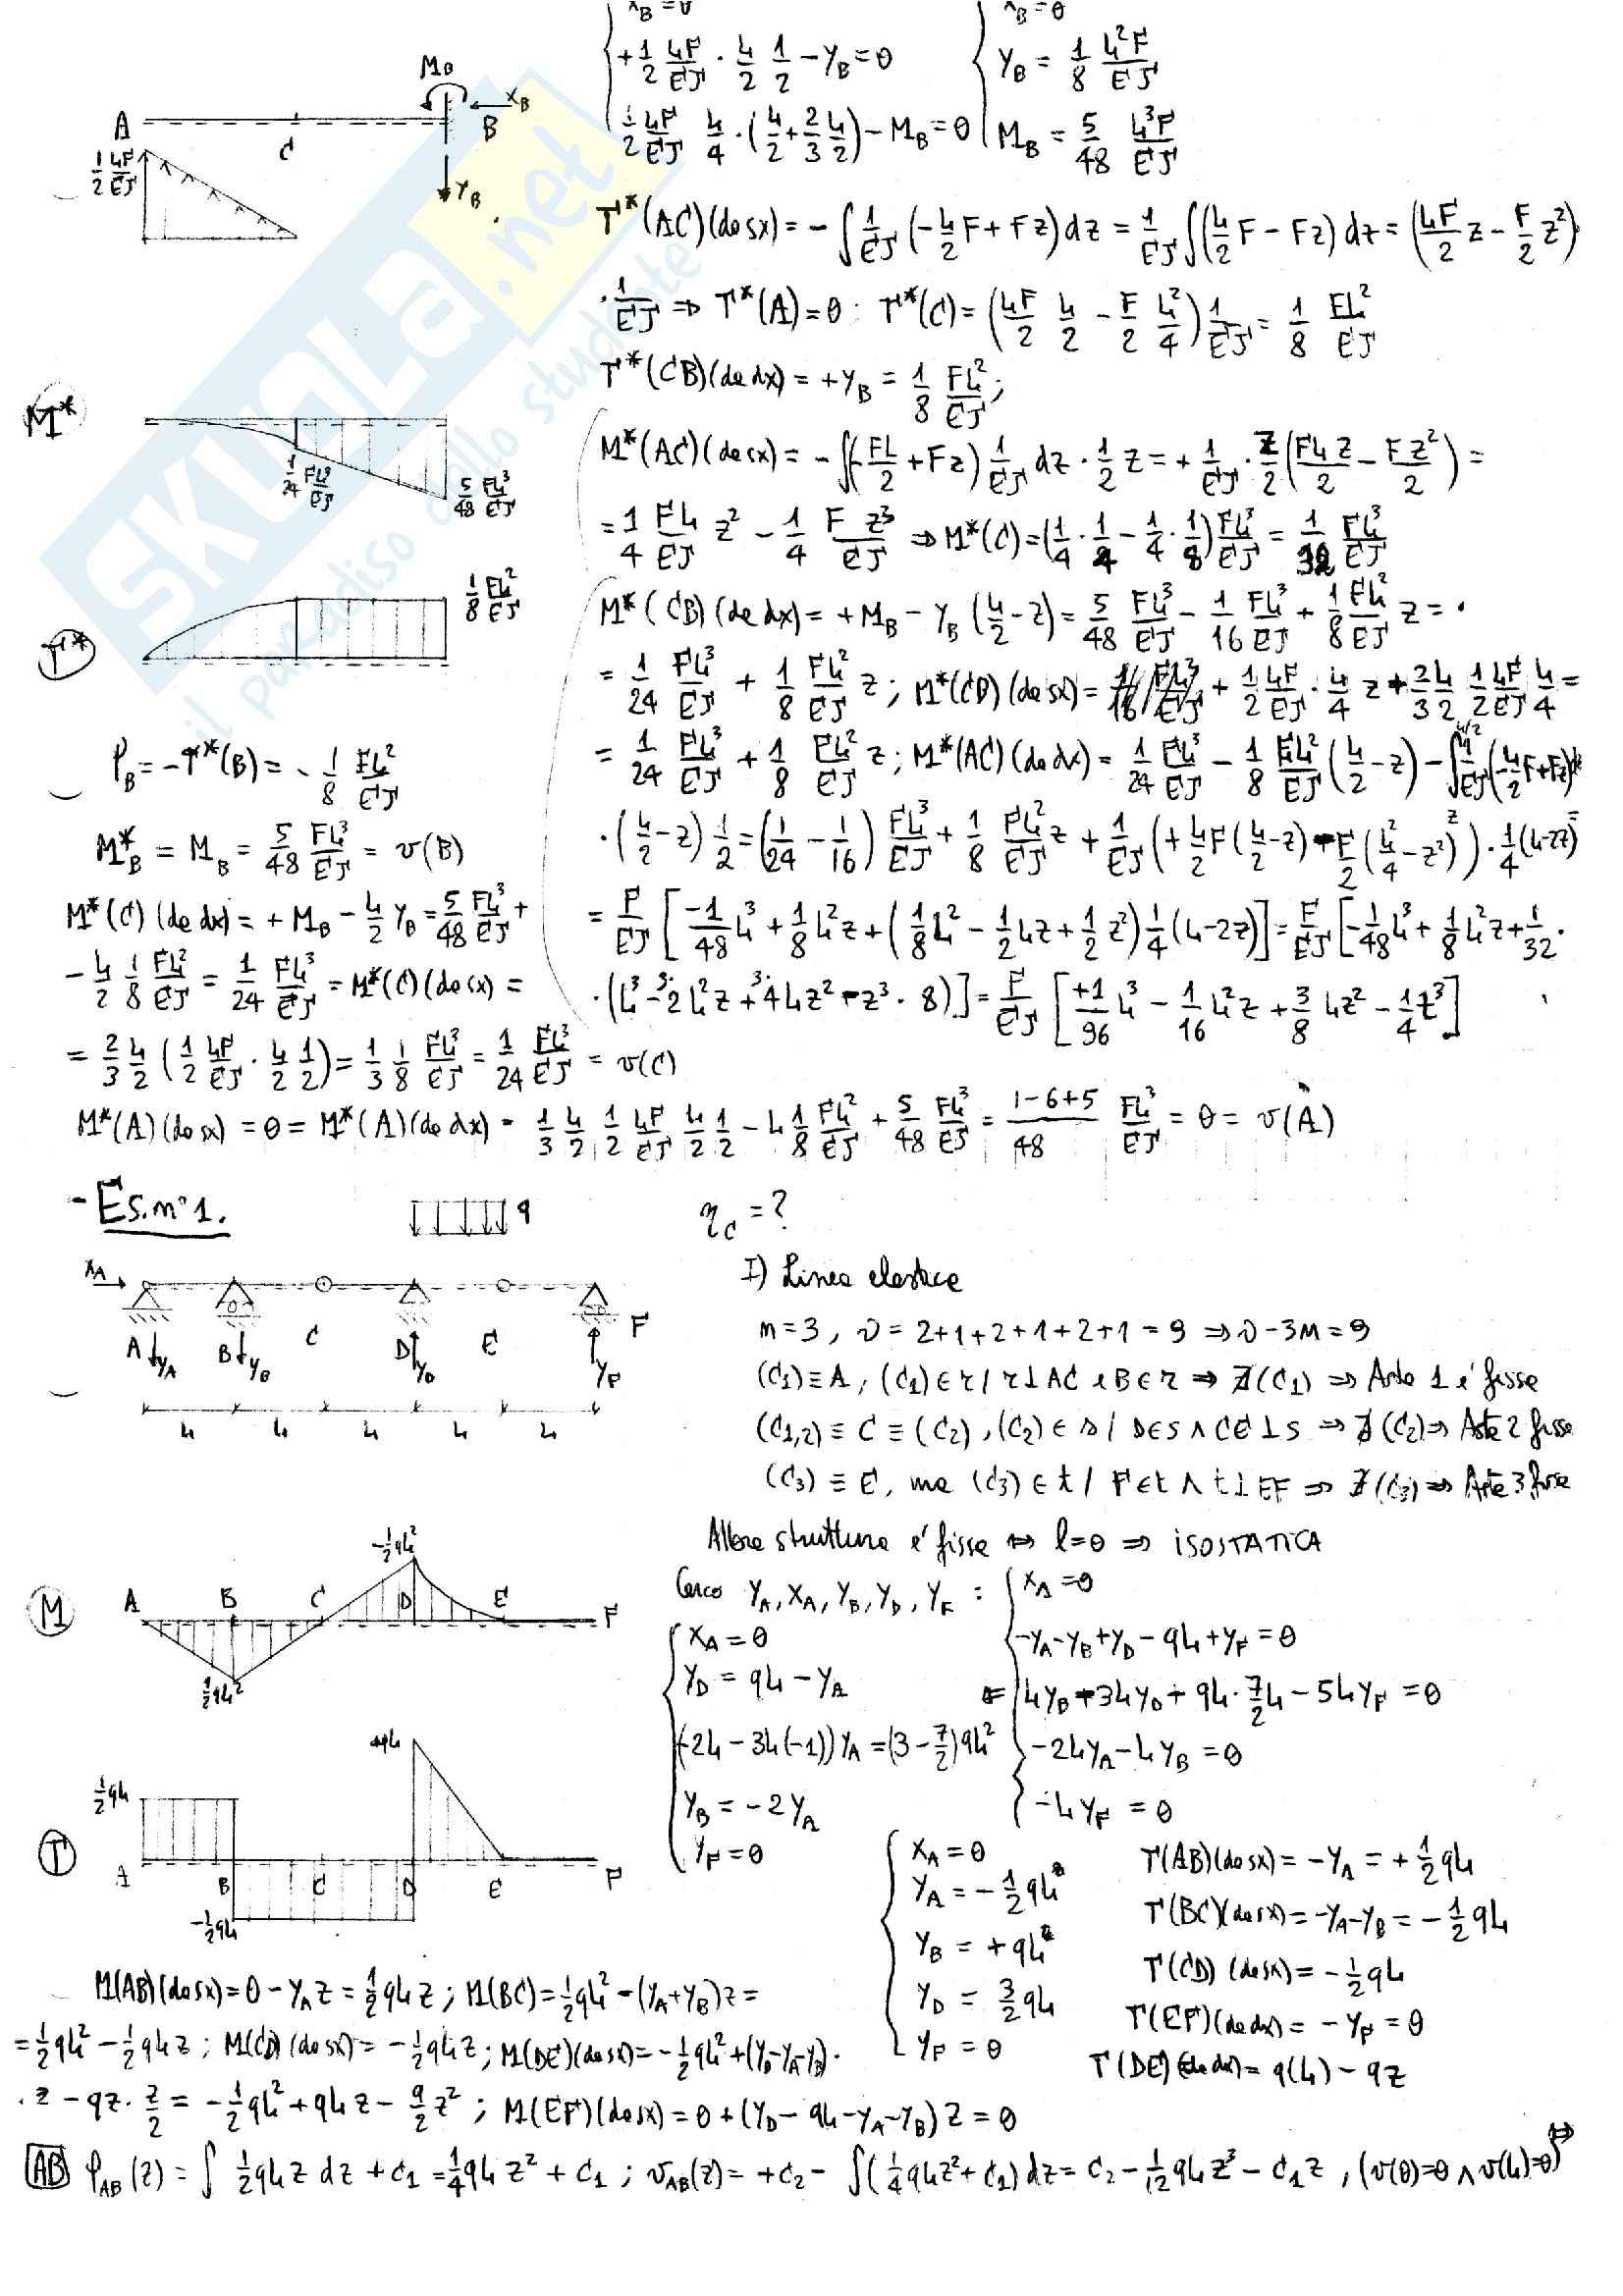 X_B = 0
X_B = 0
+1/2 LF/EJ · L/2 1/2 − Y_B = 0
Y_B = 1/8 L²F/EJ
1/2 LF/EJ L/4 · (L/2 + 2/3 L/2) − M_B = 0
M_B = 5/48 L³F/EJ
M_B
X_B
A
C
B
Y_B
1/2 LF/EJ
T*(AC)(da sx) = − ∫ 1/EJ (−L/2 F + Fz) dz = 1/EJ ∫ (L/2 F − Fz) dz = (LF/2 z − F/2 z²) ·
· 1/EJ ⇒ T*(A) = 0 : T*(C) = (LF/2 L/2 − F/2 L²/4) 1/EJ = 1/8 FL²/EJ
T*(CB)(da dx) = +Y_B = 1/8 FL²/EJ ;
M*
1/24 FL³/EJ
5/48 FL³/EJ
M*(AC)(da sx) = − ∫(−FL/2 + Fz) 1/EJ dz · 1/2 z = + 1/EJ · z/2 (FLz/2 − Fz²/2) =
= 1/4 FL/EJ z² − 1/4 F z³/EJ ⇒ M*(C) = (1/4 · 1/4 − 1/4 · 1/8) FL³/EJ = 1/32 FL³/EJ
T*
1/8 FL²/EJ
M*(CB)(da dx) = +M_B − Y_B (L/2 − z) = 5/48 FL³/EJ − 1/16 FL³/EJ + 1/8 FL²/EJ z = ·
= 1/24 FL³/EJ + 1/8 FL²/EJ z ; M*(CD)(da sx) = + 1/2 LF/EJ · L/4 z + 2/3 L/2 1/2 LF/EJ L/4 =
= 1/24 FL³/EJ + 1/8 FL²/EJ z ; M*(AC)(da dx) = 1/24 FL³/EJ − 1/8 FL²/EJ (L/2 − z) − ∫ 1/EJ (−L/2 F + Fz) dz
· (L/2 − z) 1/2 = (1/24 − 1/16) FL³/EJ + 1/8 FL²/EJ z + 1/EJ (+L/2 F (L/2 − z) − F/2 (L²/4 − z²)) · 1/4 (L−2z) =
= F/EJ [−1/48 L³ + 1/8 L²z + (1/8 L² − 1/2 Lz + 1/2 z²) 1/4 (L−2z)] = F/EJ [−1/48 L³ + 1/8 L²z + 1/32 ·
· (L³ − 3·2L²z + 3·4Lz² − z³ · 8)] = F/EJ [+1/96 L³ − 1/16 L²z + 3/8 Lz² − 1/4 z³]
φ_B = −T*(B) = − 1/8 FL²/EJ
M*_B = M_B = 5/48 FL³/EJ = v(B)
M*(C)(da dx) = +M_B − L/2 Y_B = 5/48 FL³/EJ +
− L/2 1/8 FL²/EJ = 1/24 FL³/EJ = M*(C)(da sx) =
= 2/3 L/2 (1/2 LF/EJ · L/2 1/2) = 1/3 1/8 FL³/EJ = 1/24 FL³/EJ = v(C)
M*(A)(da sx) = 0 = M*(A)(da dx) = 1/3 L/2 1/2 LF/EJ L/2 1/2 − L 1/8 FL²/EJ + 5/48 FL³/EJ = (1−6+5)/48 FL³/EJ = 0 = v(A)
- Es. n°1.
q
η_C = ?
X_A
A Y_A B Y_B C D Y_D E F Y_F
L L L L L
I) Linea elastica
n=3, ν = 2+1+2+1+2+1 = 9 ⇒ ν−3n = 9
(C₁)≡A, (C₁)∈r / r⊥AC e B∈r ⇒ ∄(C₁) ⇒ Asta 1 è fissa
(C₁,₂) ≡ C ≡ (C₂), (C₂) ∈ s / D∈s ∧ CE⊥s ⇒ ∄(C₂) ⇒ Asta 2 fissa
(C₃) ≡ E, ma (C₃) ∈ t / F∈t ∧ t⊥EF ⇒ ∄(C₃) ⇒ Asta 3 fissa
Allora struttura è fissa ⇔ l=0 ⇒ ISOSTATICA
M
−1/2 qL²
A B C D E F
1/2 qL²
Cerco Y_A, X_A, Y_B, Y_D, Y_F :
X_A = 0
−Y_A − Y_B + Y_D − qL + Y_F = 0
LY_B − 3LY_D + qL · 7/2 L − 5LY_F = 0
−2LY_A − LY_B = 0
−LY_F = 0
X_A = 0
Y_D = qL − Y_A
(−2L − 3L(−1)) Y_A = (3 − 7/2) qL²
Y_B = −2Y_A
Y_F = 0
T
1/2 qL
+qL
A B C D E F
−1/2 qL
X_A = 0
Y_A = −1/2 qL
Y_B = +qL
Y_D = 3/2 qL
Y_F = 0
T(AB)(da sx) = −Y_A = +1/2 qL
T(BC)(da sx) = −Y_A−Y_B = −1/2 qL
T(CD)(da sx) = −1/2 qL
T(EF)(da dx) = −Y_F = 0
T(DE)(da dx) = q(L) − qz
M(AB)(da sx) = 0 − Y_A z = 1/2 qL z ; M(BC) = 1/2 qL² − (Y_A+Y_B) z =
= 1/2 qL² − 1/2 qL z ; M(CD)(da sx) = −1/2 qL z ; M(DE)(da sx) = −1/2 qL² + (Y_D−Y_A−Y_B) ·
· z − qz · z/2 = −1/2 qL² + qL z − q/2 z² ; M(EF)(da sx) = 0 + (Y_D − qL − Y_A − Y_B) z = 0
AB φ_AB(z) = ∫ 1/2 qL z dz + C₁ = 1/4 qL z² + C₁ ; v_AB(z) = +C₂ − ∫(1/4 qLz² + C₁) dz = C₂ − 1/12 qL z³ − C₁ z , (v(0)=0 ∧ v(L)=0) ⇔
SKUOLA.net
il paradiso dello studente